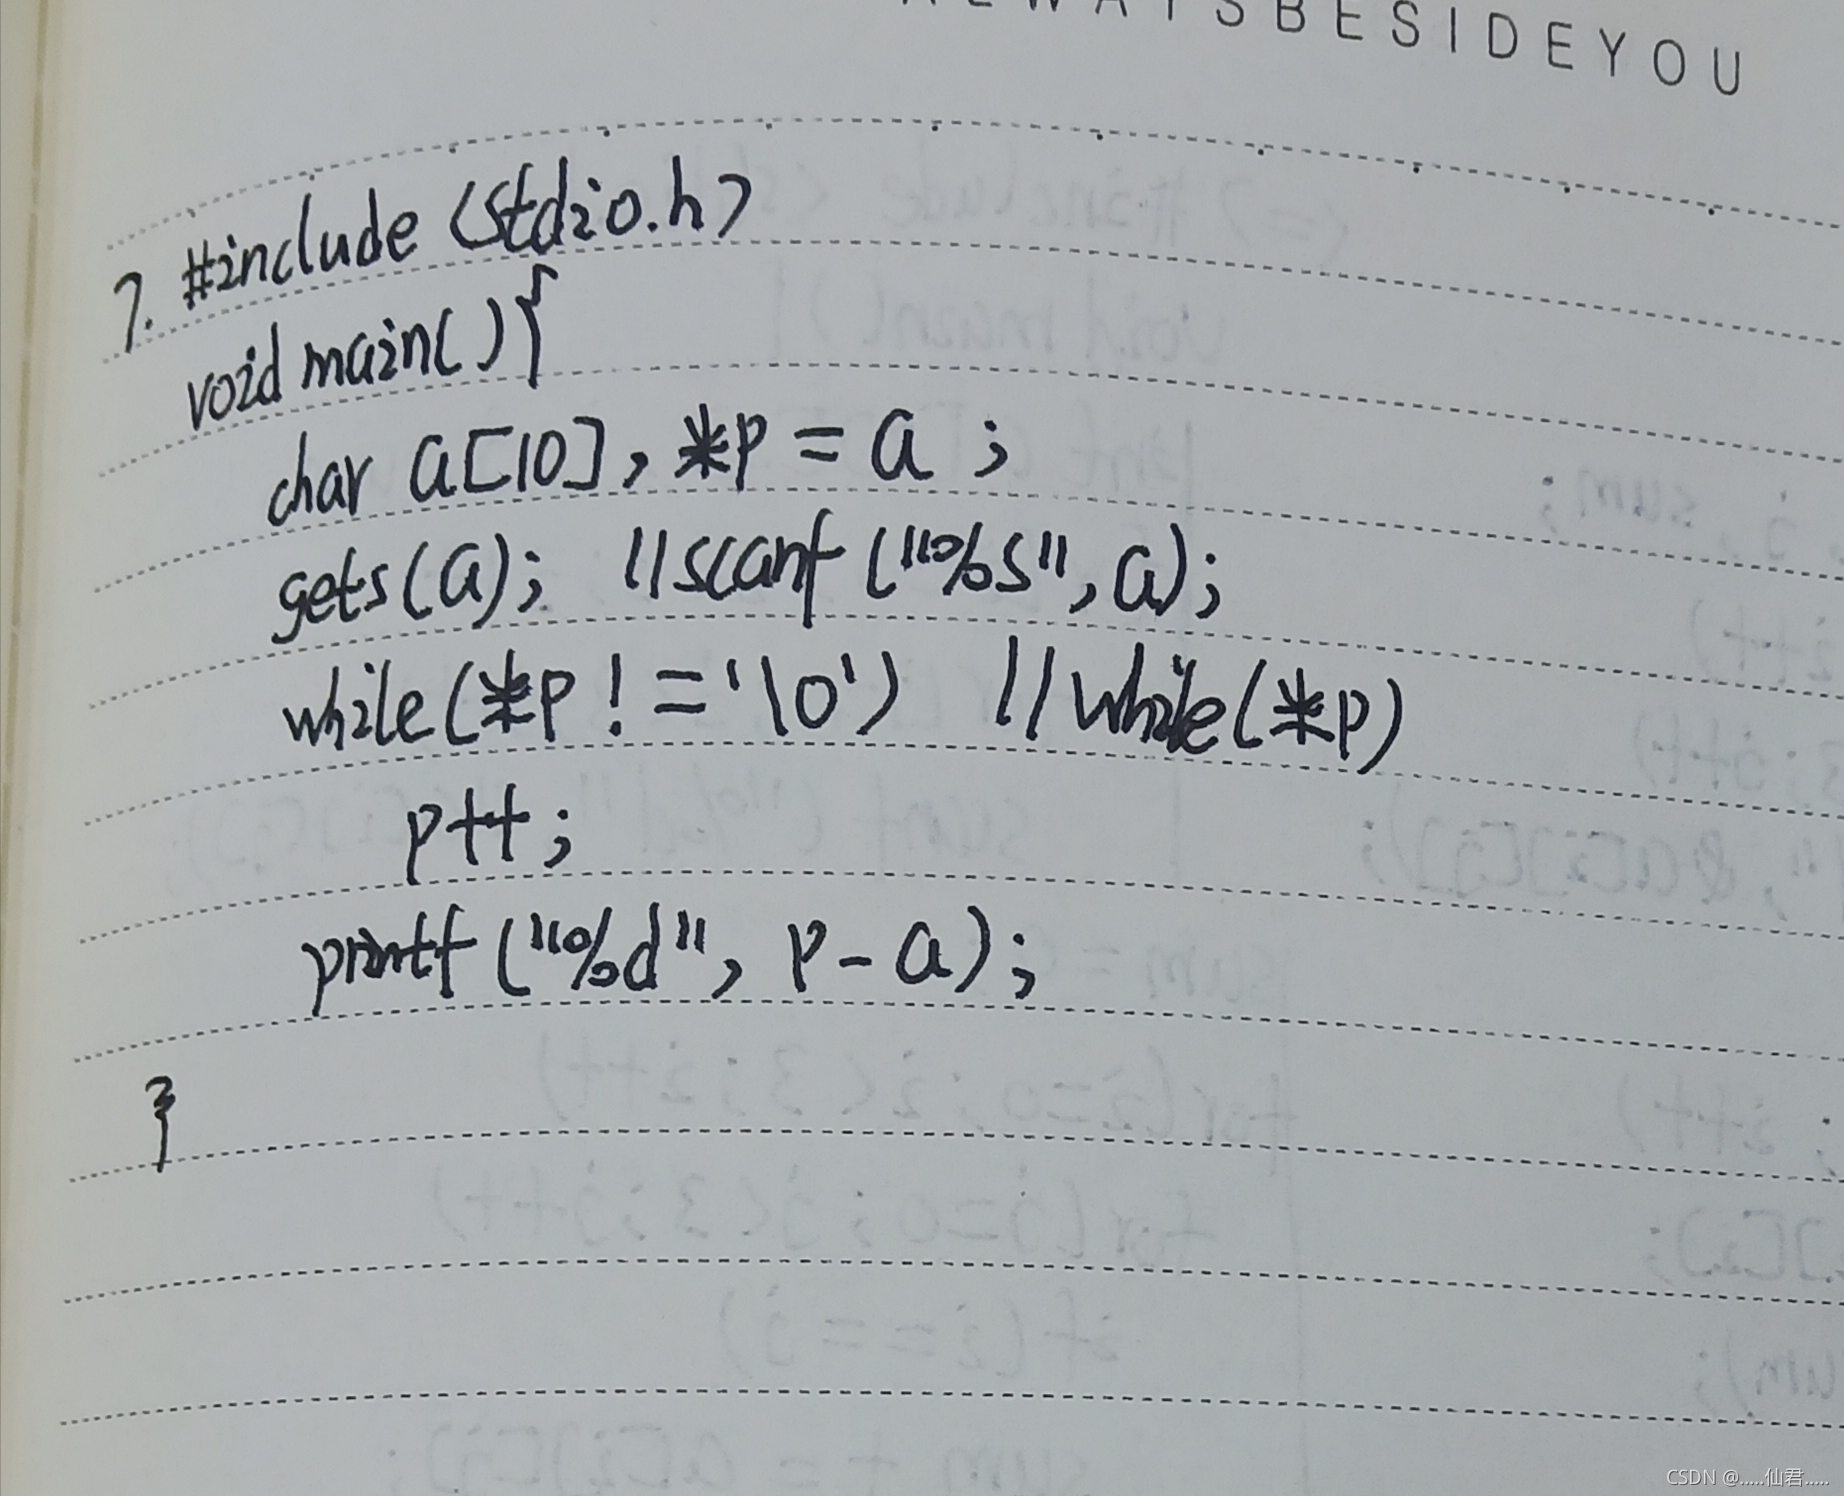 ALWAYSBESIDEYOU
7. #include <stdio.h>
void main(){
char a[10], *p = a ;
gets(a); //scanf("%s", a);
while(*p != '\0') //while(*p)
p++;
printf("%d", p-a);
}
CSDN @.....仙君.....